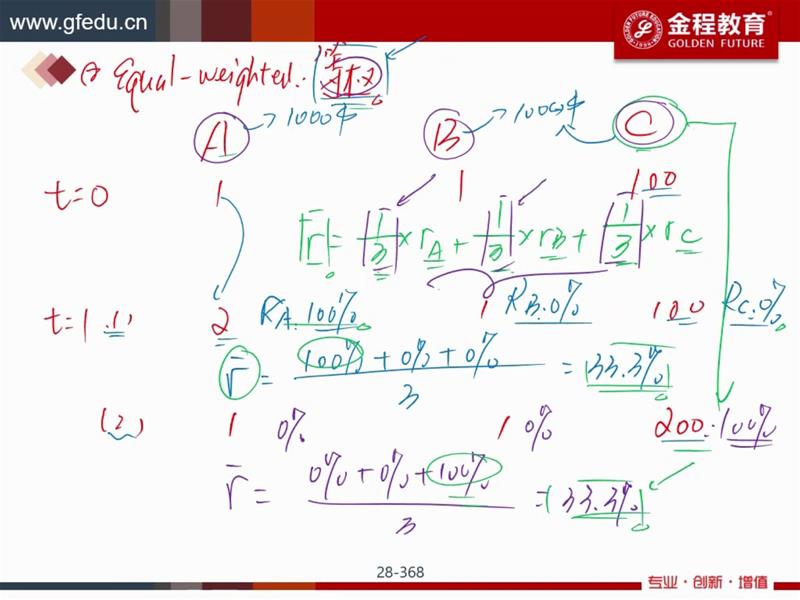 www.gfedu.cn
金程教育
GOLDEN FUTURE
Equal-weighted.
A → 1000 B → 1000 C
t=0 1 1 100
r̄ = 1/3 × rA + 1/3 × rB + 1/3 × rC
t=1 (1) 2 RA: 100% 1 RB: 0% 100 RC: 0%
r̄ = (100% + 0% + 0%) / 3 = 33.3%
(2) 1 0% 1 0% 200 100%
r̄ = (0% + 0% + 100%) / 3 = 33.3%
28-368
专业·创新·增值